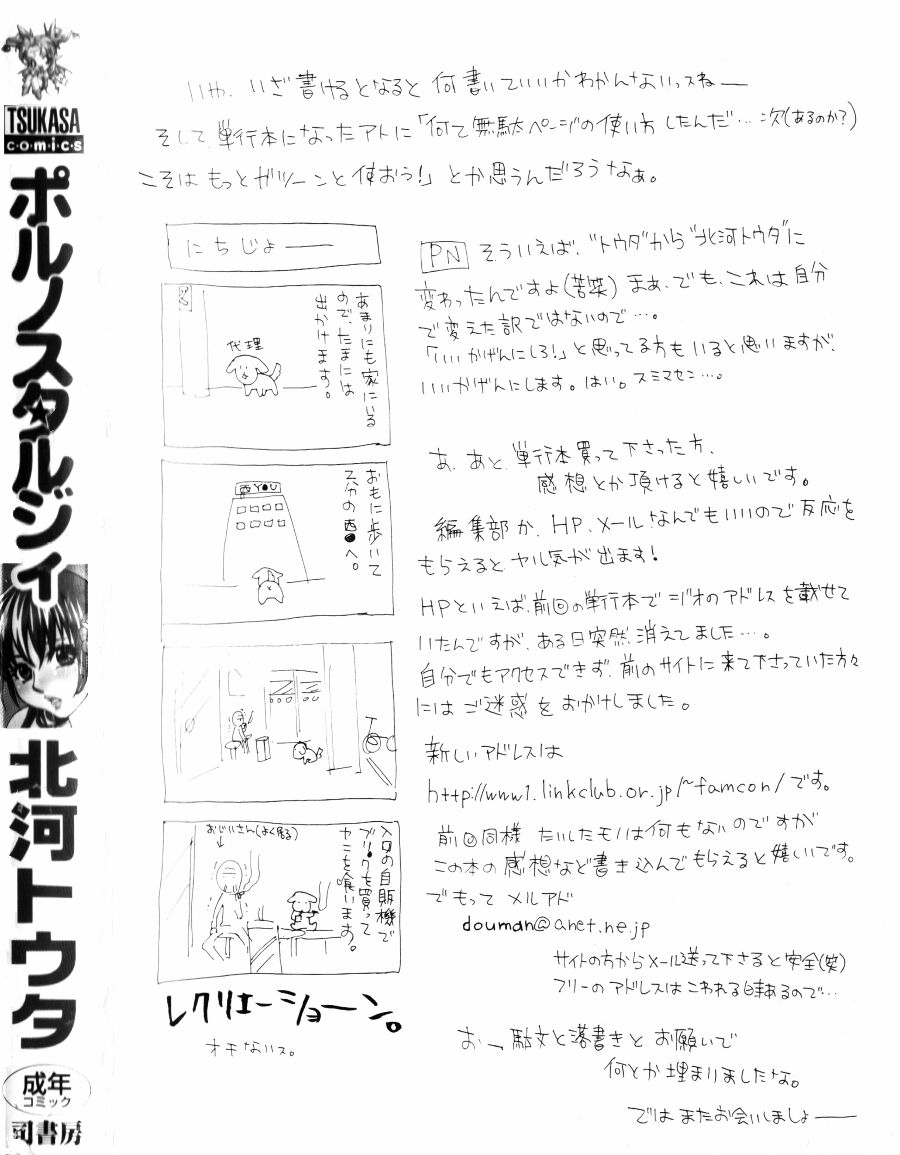 TSUKASA
c・o・m・i・c・s
ポルノスタルジィ
北河トウタ
成年
コミック
司書房
いや、いざ書けるとなると何書いていいかわかんないっスねー
そして単行本になったアトに「何て無駄ページの使い方したんだ…次(あるのか?)
こそはもっとガツーンと使おう!」とか思うんだろうなぁ。
にちじょー
あまりにも家にいる
ので、たまには
出かけます。
代理
おもに歩いて
2分の西●へ。
西YOU
入口の自販機で
ブリ●クを買って
ヤニを喰います。
おじいさん(よく居る)
レクリエーショーン。
オチないス。
PN そういえば、“トウタ”から“北河トウタ”に
変わったんですよ(苦笑)まぁ、でも、これは自分
で変えた訳ではないので…。
「いいかげんにしろ!」と思ってる方もいると思いますが、
いいかげんにします。はい。スミマセン…。
あ、あと、単行本買って下さった方、
感想とか頂けると嬉しいです。
編集部か、HP、メールなんでもいいので反応を
もらえるとヤル気が出ます!
HPといえば、前回の単行本でジオのアドレスを載せて
いたんですが、ある日突然消えてました…。
自分でもアクセスできず、前のサイトに来て下さっていた方々
にはご迷惑をおかけしました。
新しいアドレスは
http://www1.linkclub.or.jp/~famcon/です。
前回同様 たいしたモノは何もないのですが
この本の感想など書き込んでもらえると嬉しいです。
でもって メルアド
douman@anet.ne.jp
サイトの方からメール送って下さると安全(笑)
フリーのアドレスはこわれる時あるので…
おー、駄文と落書きとお願いで
何とか埋まりましたな。
ではまたお会いしましょー